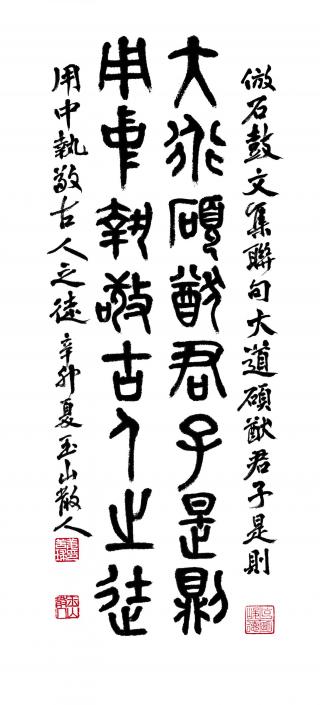 倣石鼓文集聯句大道碩猷君子是則
大道碩猷君子是則
用中執敬古人之徒
用中執敬古人之徒 辛卯夏玉山散人